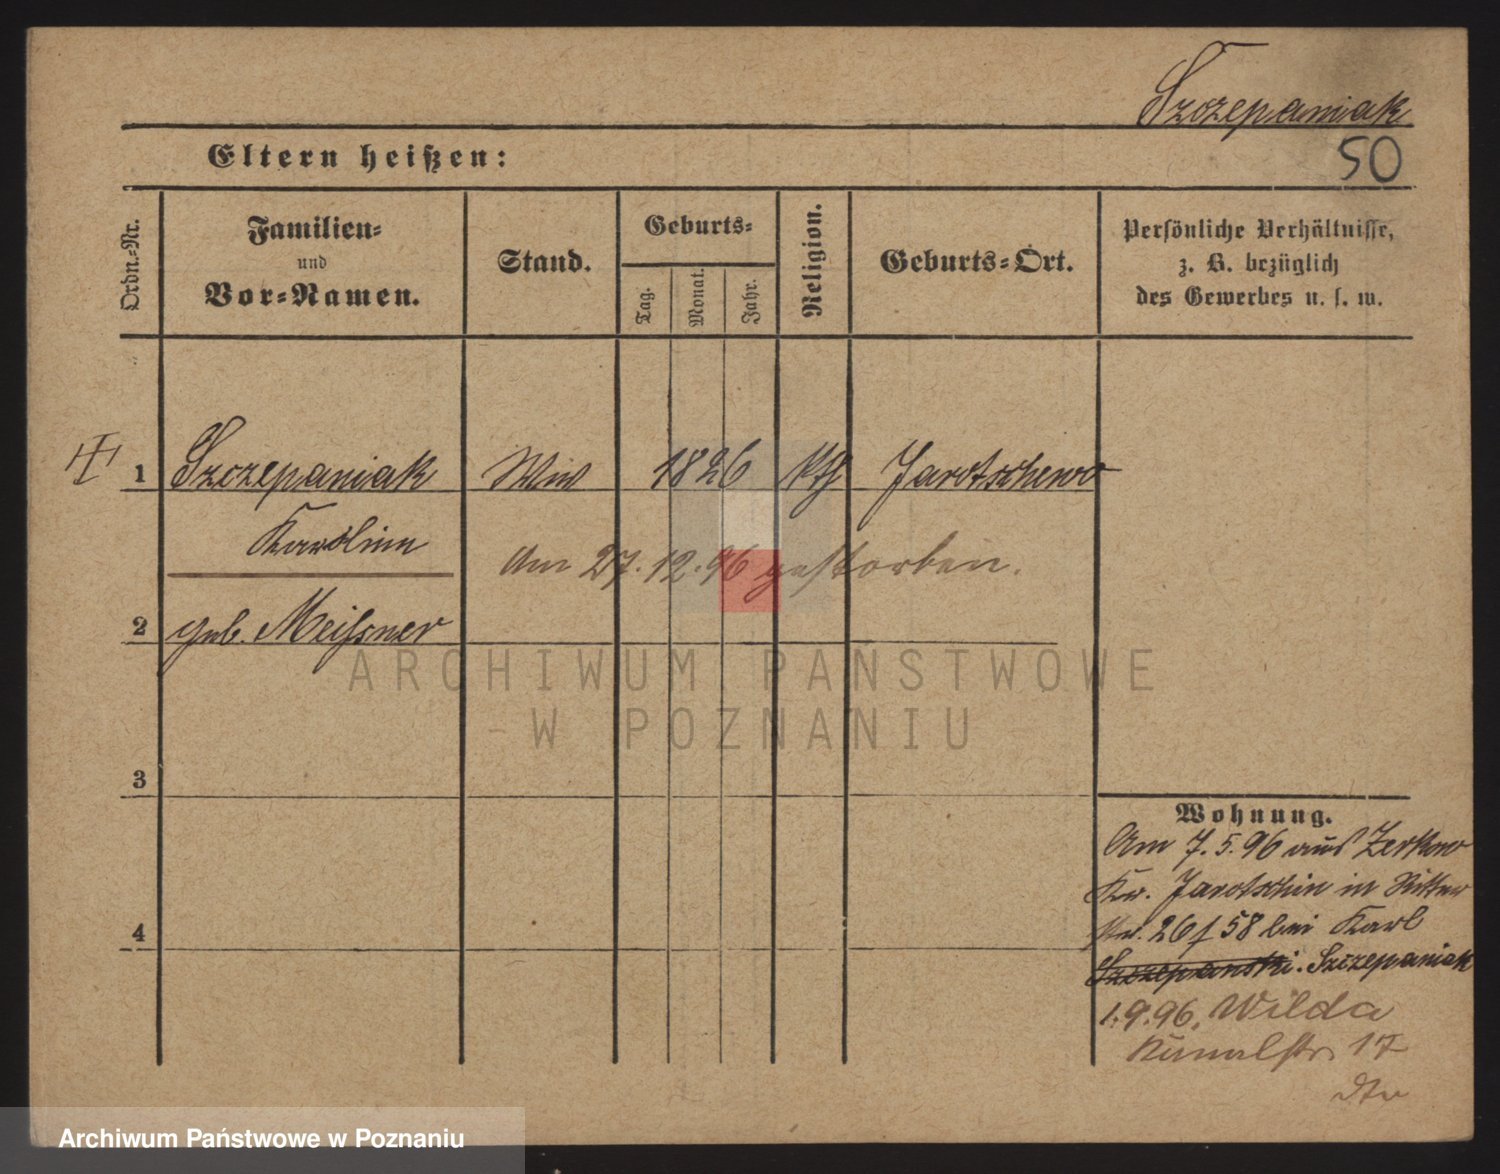 Szczepaniak
50
Eltern heißen:
Ordn.-Nr.
Familien-
und
Vor-Namen.
Stand.
Geburts-
Tag.
Monat.
Jahr.
Religion.
Geburts-Ort.
Persönliche Verhältnisse,
z. B. bezüglich
des Gewerbes u. s. w.
1 Szczepaniak Ww 1826 kth Jarotschewo
Karoline
Am 27.12.96 gestorben.
2 geb. Meißner
ARCHIWUM PAŃSTWOWE
W POZNANIU
3
Wohnung.
Am 7.5.96 aus Zerkow
Kr. Jarotschin in Ritter
str. 26/58 bei Karl
4
Szczepanski. Szczepaniak
1.9.96. Wilda
Kanalstr. 17
Archiwum Państwowe w Poznaniu